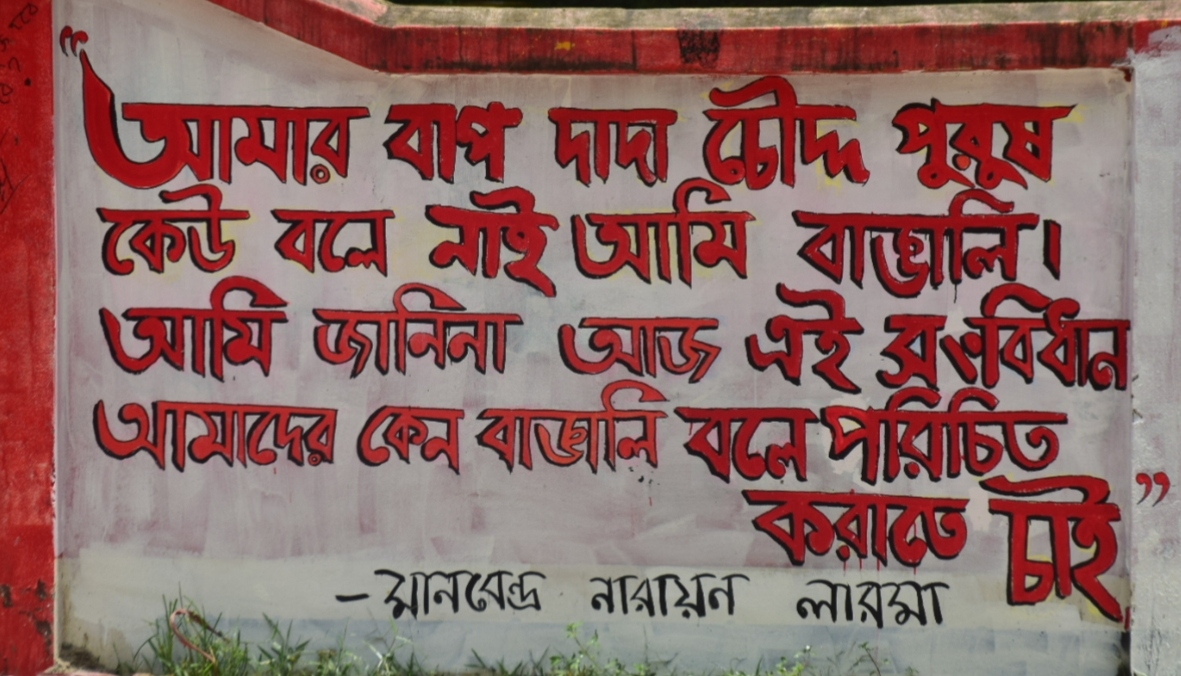 “আমার বাপ দাদা চৌদ্দ পুরুষ
কেউ বলে নাই আমি বাঙালি।
আমি জানিনা আজ এই সংবিধান
আমাদের কেন বাঙালি বলে পরিচিত
করাতে চাই”
– মানবেন্দ্র নারায়ন লারমা